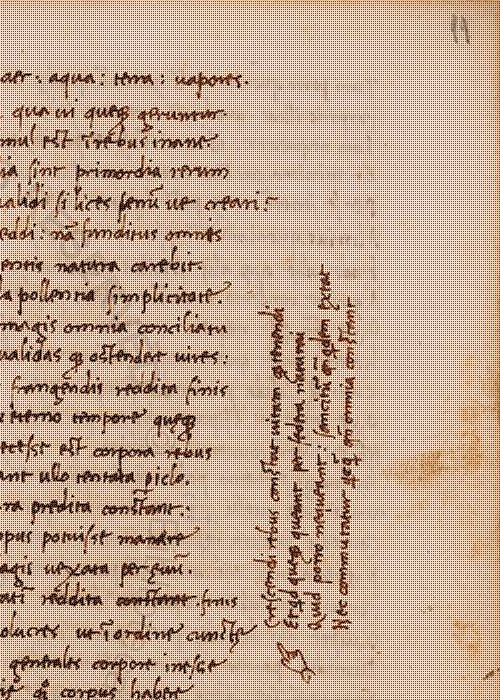 11
aer: aqua: terra: uapores.
qua ui queq gerantur.
mul est ī rebus inane.
ia sint primordia rerum
ualidi si lices ferrū ue creari:
eddi: nā funditus omnis
entis natura carebit.
la pollentia simplicitate.
magis omnia conciliatu
ualidas q ostendere uires:
frangendis reddita finis
terno tempore queq
ecesse est corpora rebus
ant ullo tentata piclo.
ra predita constant:
opus potuisse manere
agis uexata per ęuū.
ati reddita constat finis
olucres ut ī ordine cuncte
generales corpore inesse
q corpus habere
Crescendi rbus constat uitam q tenendi
Et qd queq queant per fedra naturai
Quid porro nequeant: sancitū qn qdem extat
Nec commutatur qcq qn omnia constant